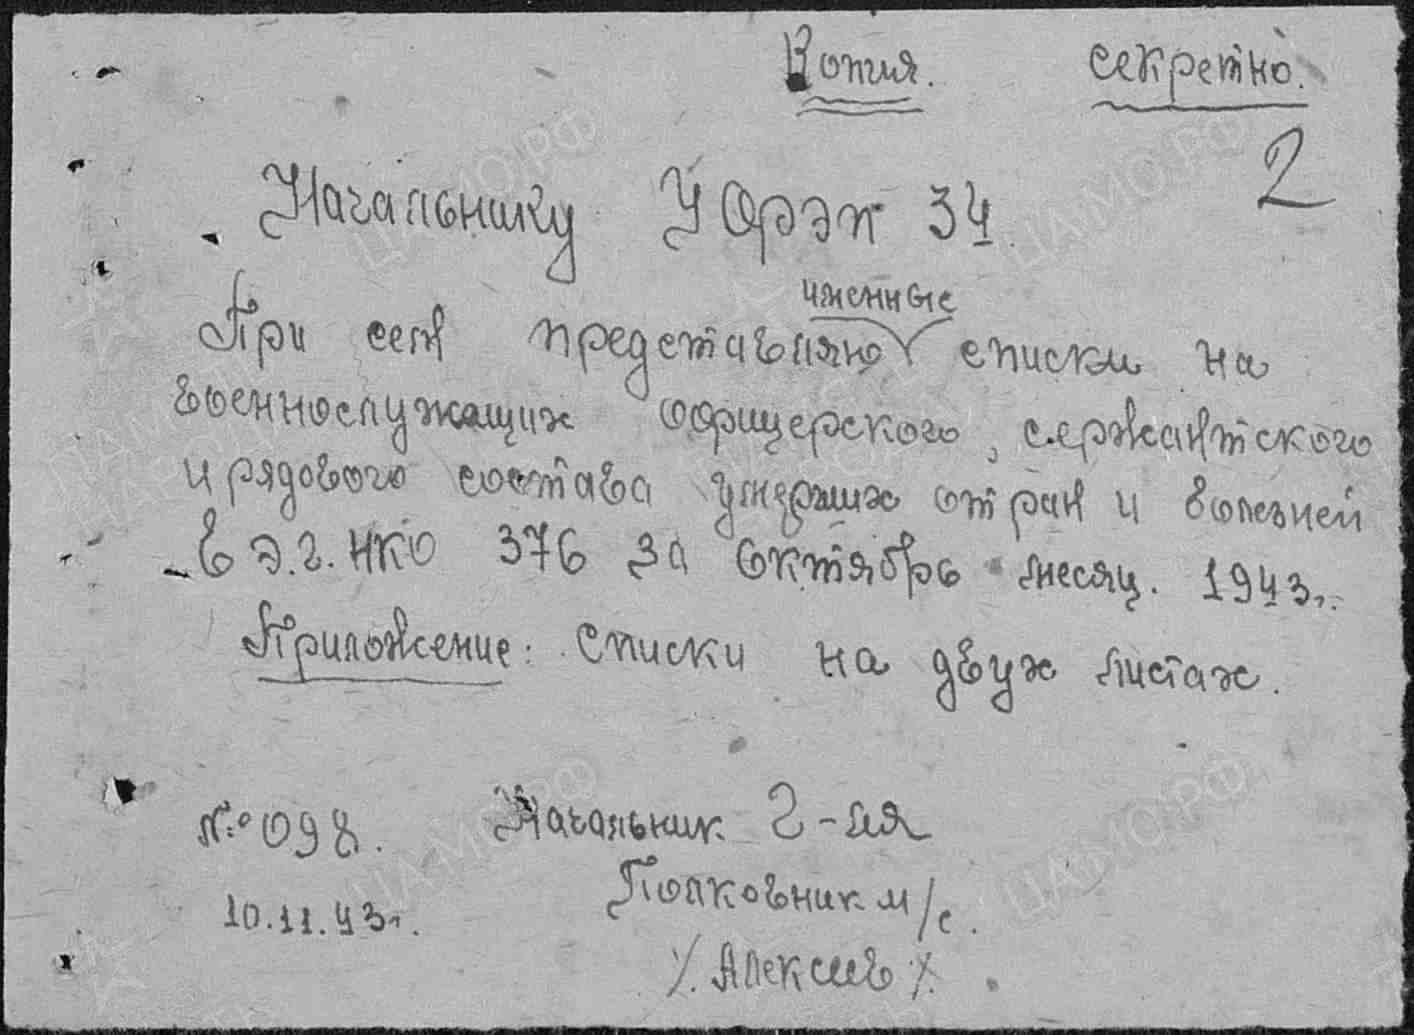 Копия. секретно.
2
Начальнику УОРЭК 34
именные
При сем представляю списки на
военнослужащих офицерского, сержантского
и рядового состава умерших от ран и болезней
в Э.Г. НКО 376 за октябрь месяц. 1943г.
Приложение: Списки на двух листах.
№ 098. Начальник Г-ля
Полковник м/с.
10.11.43г.
/. Алексеев /.
ЦАМО.РФ